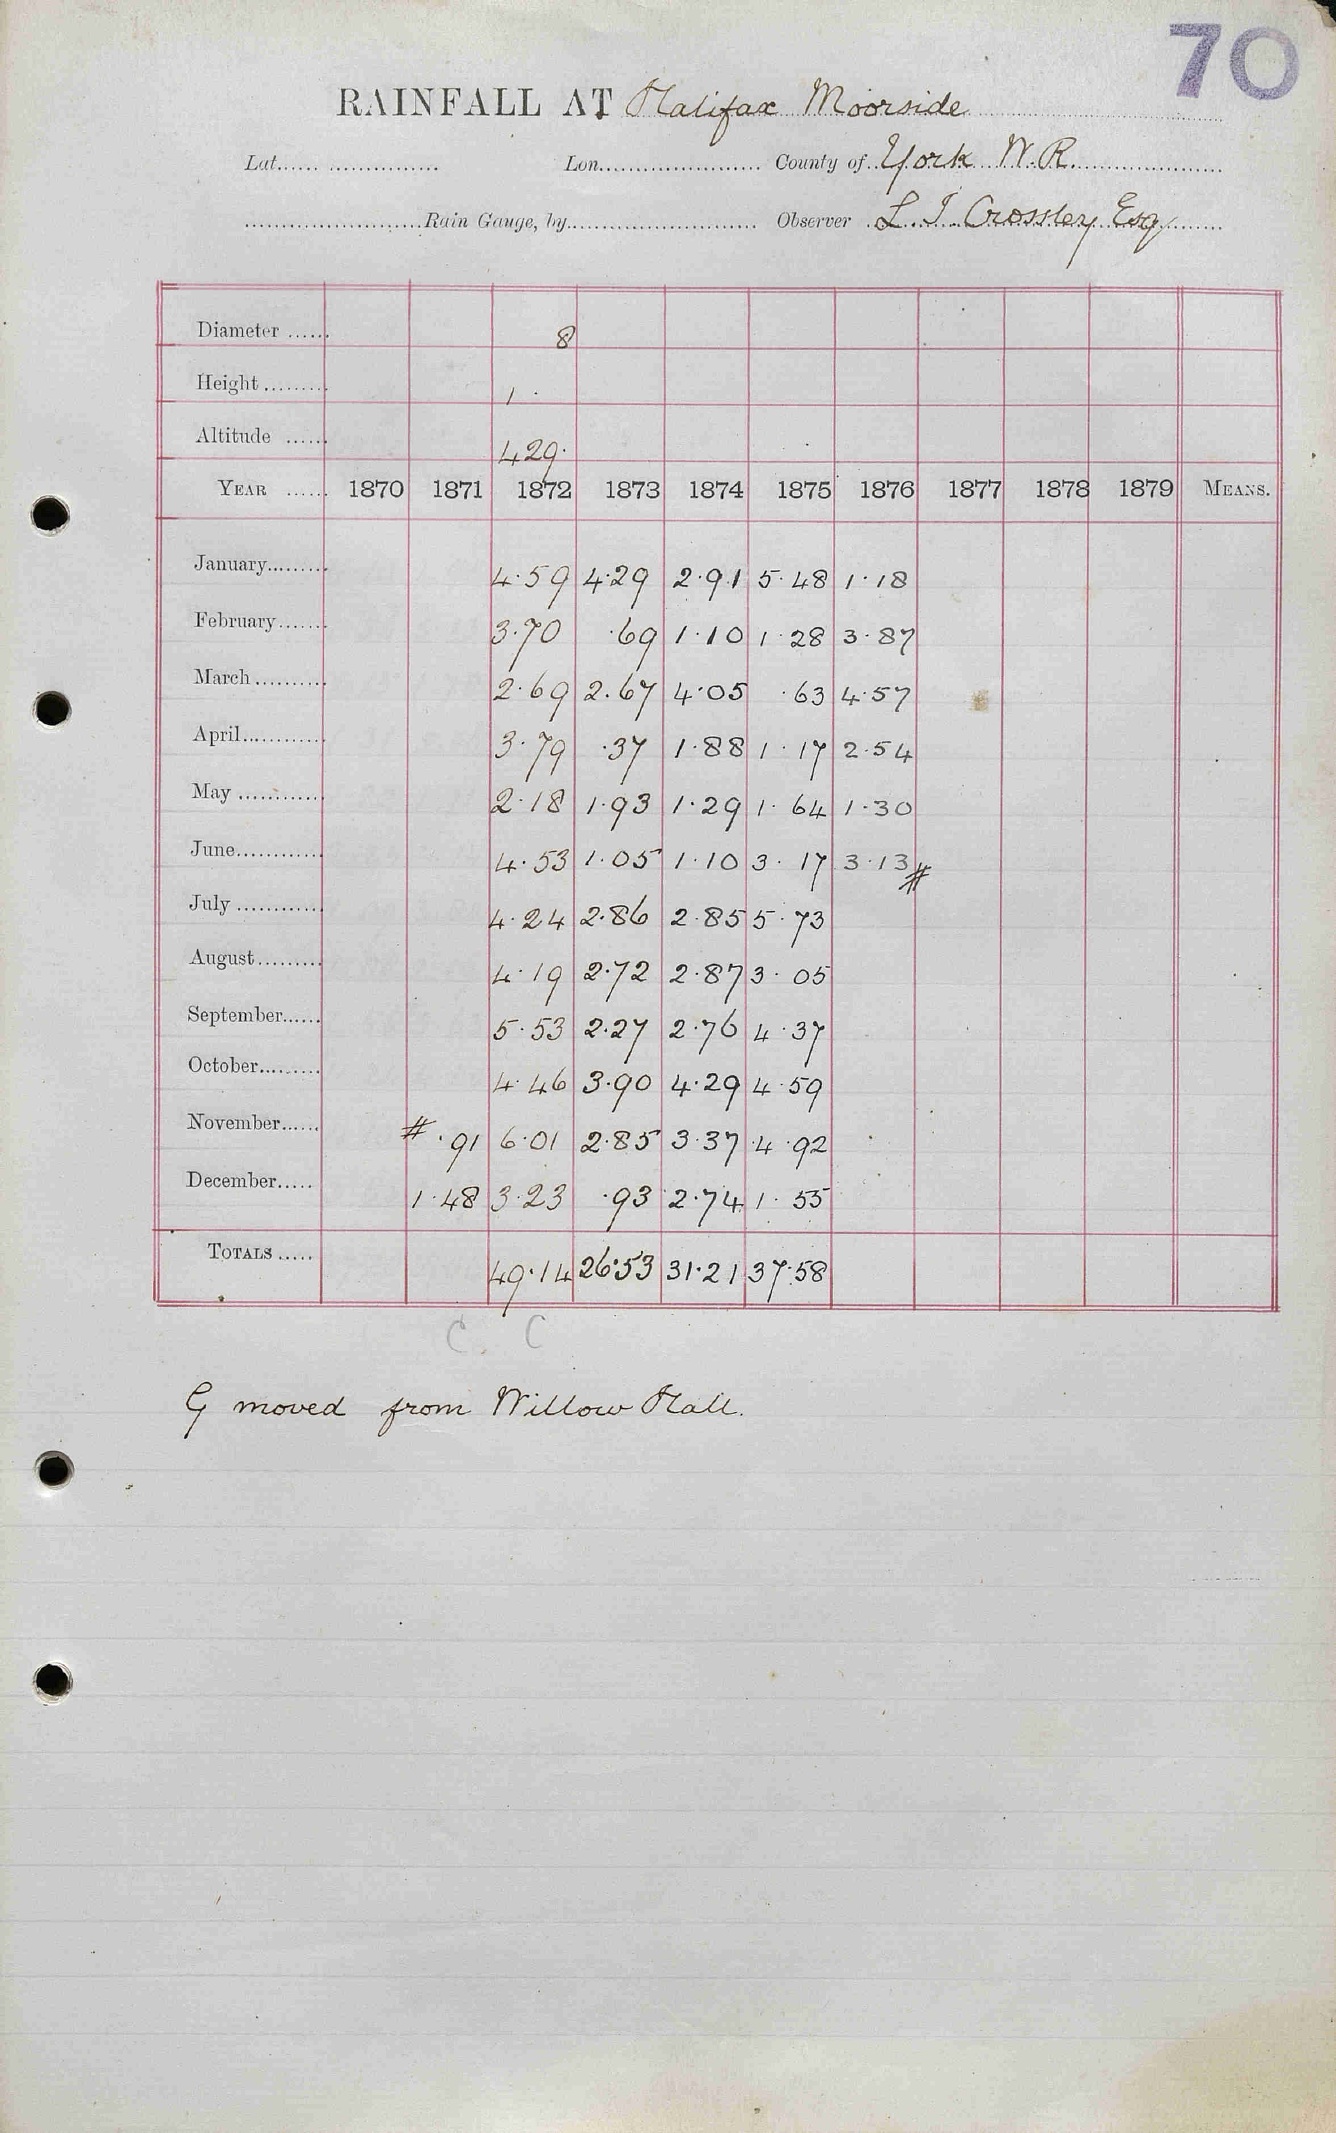 70
RAINFALL AT Halifax Moorside
Lat. Lon. County of York W.R.
Rain Gauge, by Observer L. J. Crossley Esq
Diameter 8
Height 1 ·
Altitude 429·
YEAR 1870 1871 1872 1873 1874 1875 1876 1877 1878 1879 MEANS.
January 4·59 4·29 2·91 5·48 1·18
February 3·70 ·69 1·10 1·28 3·87
March 2·69 2·67 4·05 ·63 4·57
April 3·79 ·37 1·88 1·17 2·54
May 2·18 1·93 1·29 1·64 1·30
June 4·53 1·05 1·10 3·17 3·13 #
July 4·24 2·86 2·85 5·73
August 4·19 2·72 2·87 3·05
September 5·53 2·27 2·76 4·37
October 4·46 3·90 4·29 4·59
November # ·91 6·01 2·85 3·37 4·92
December 1·48 3·23 ·93 2·74 1·55
TOTALS 49·14 26·53 31·21 37·58
C. C
G moved from Willow Hall.